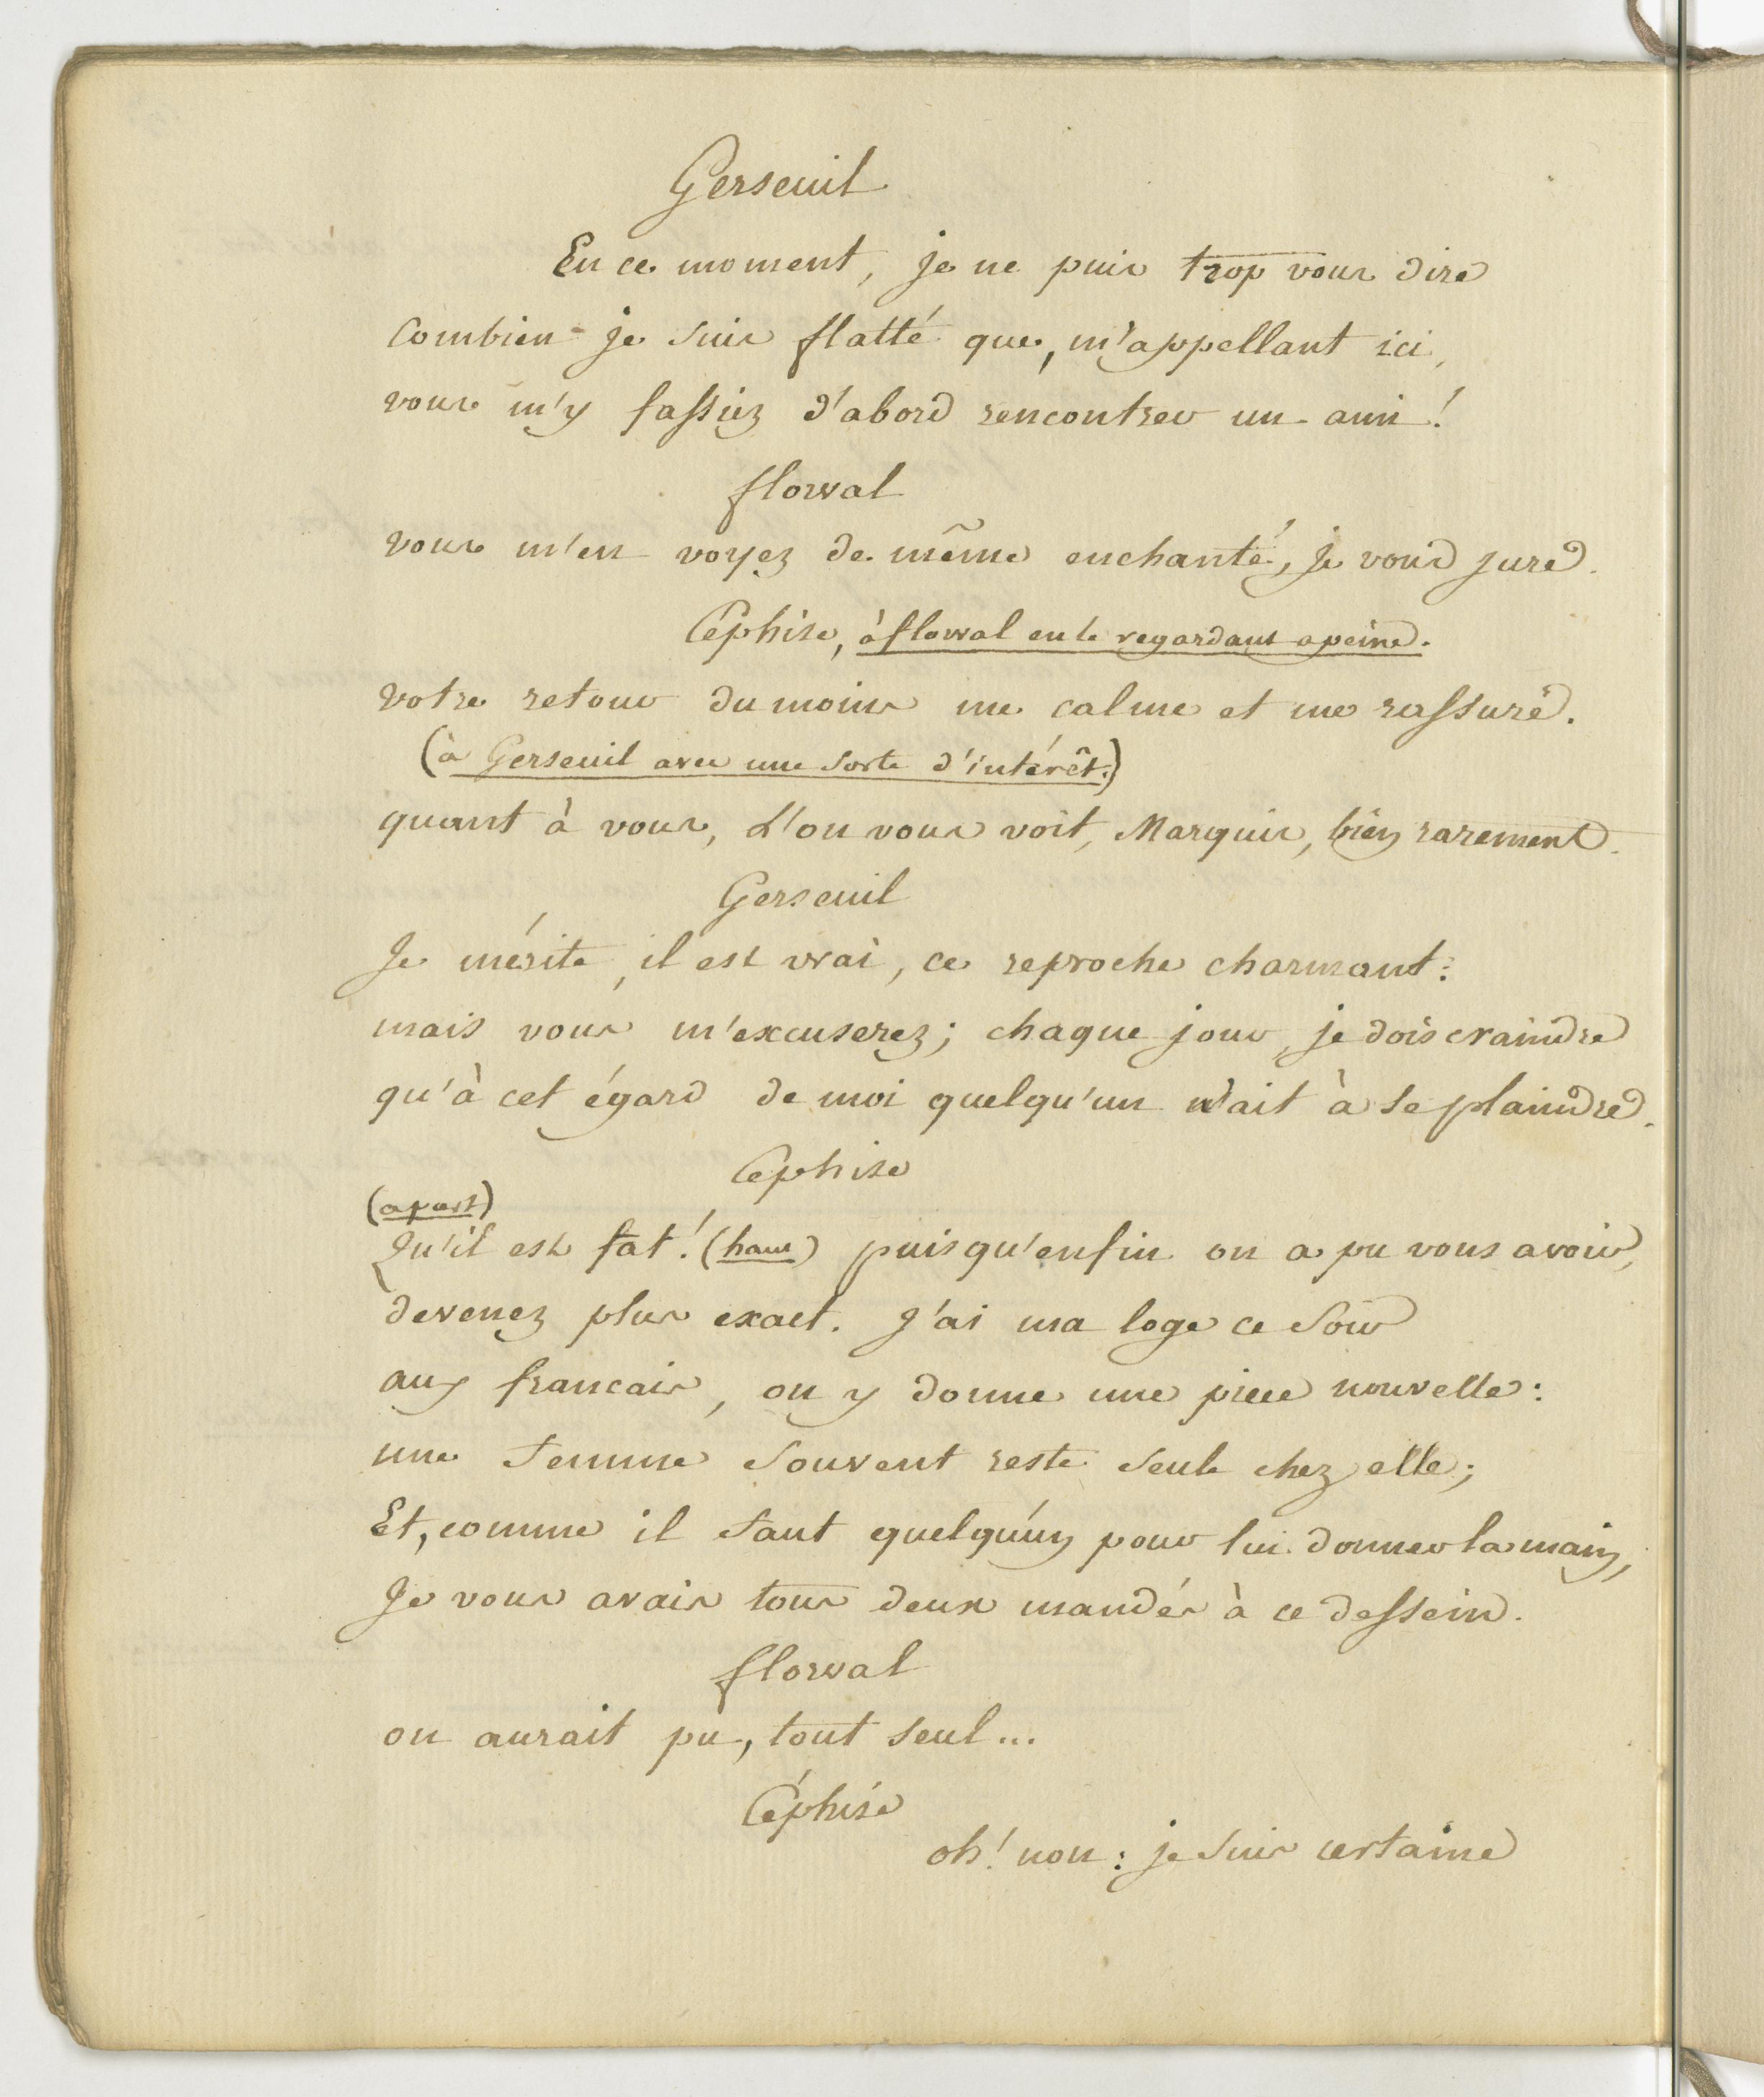 Gerseuil
En ce moment, je ne puis trop vous dire
Combien je suis flatté que, m'appellant ici,
vous m'y fassiez d'abord rencontrer un ami!
florval
vous m'en voyez de même enchanté, je vous jure.
Céphise, à florval en le regardant apeine.
votre retour du moins me calme et me rassure.
(à Gerseuil avec une sorte d'intérêt.)
quant à vous, l'on vous voit, Marquis, bien rarement.
Gerseuil
Je mérite, il est vrai, ce reproche charmant:
mais vous m'excuserez; chaque jour, je dois craindre
qu'à cet égard de moi quelqu'un n'ait à se plaindre.
Céphise
(apart)
Qu'il est fat! (haut) puisqu'enfin on a pu vous avoir,
devenez plus exact. J'ai ma loge ce soir
aux francais, on y donne une piece nouvelle:
une femme souvent reste seule chez elle;
Et, comme il faut quelqu'un pour lui donner la main,
Je vous avais tous deux mandés à ce dessein.
florval
on aurait pu, tout seul...
Céphise
oh! non: je suis certaine